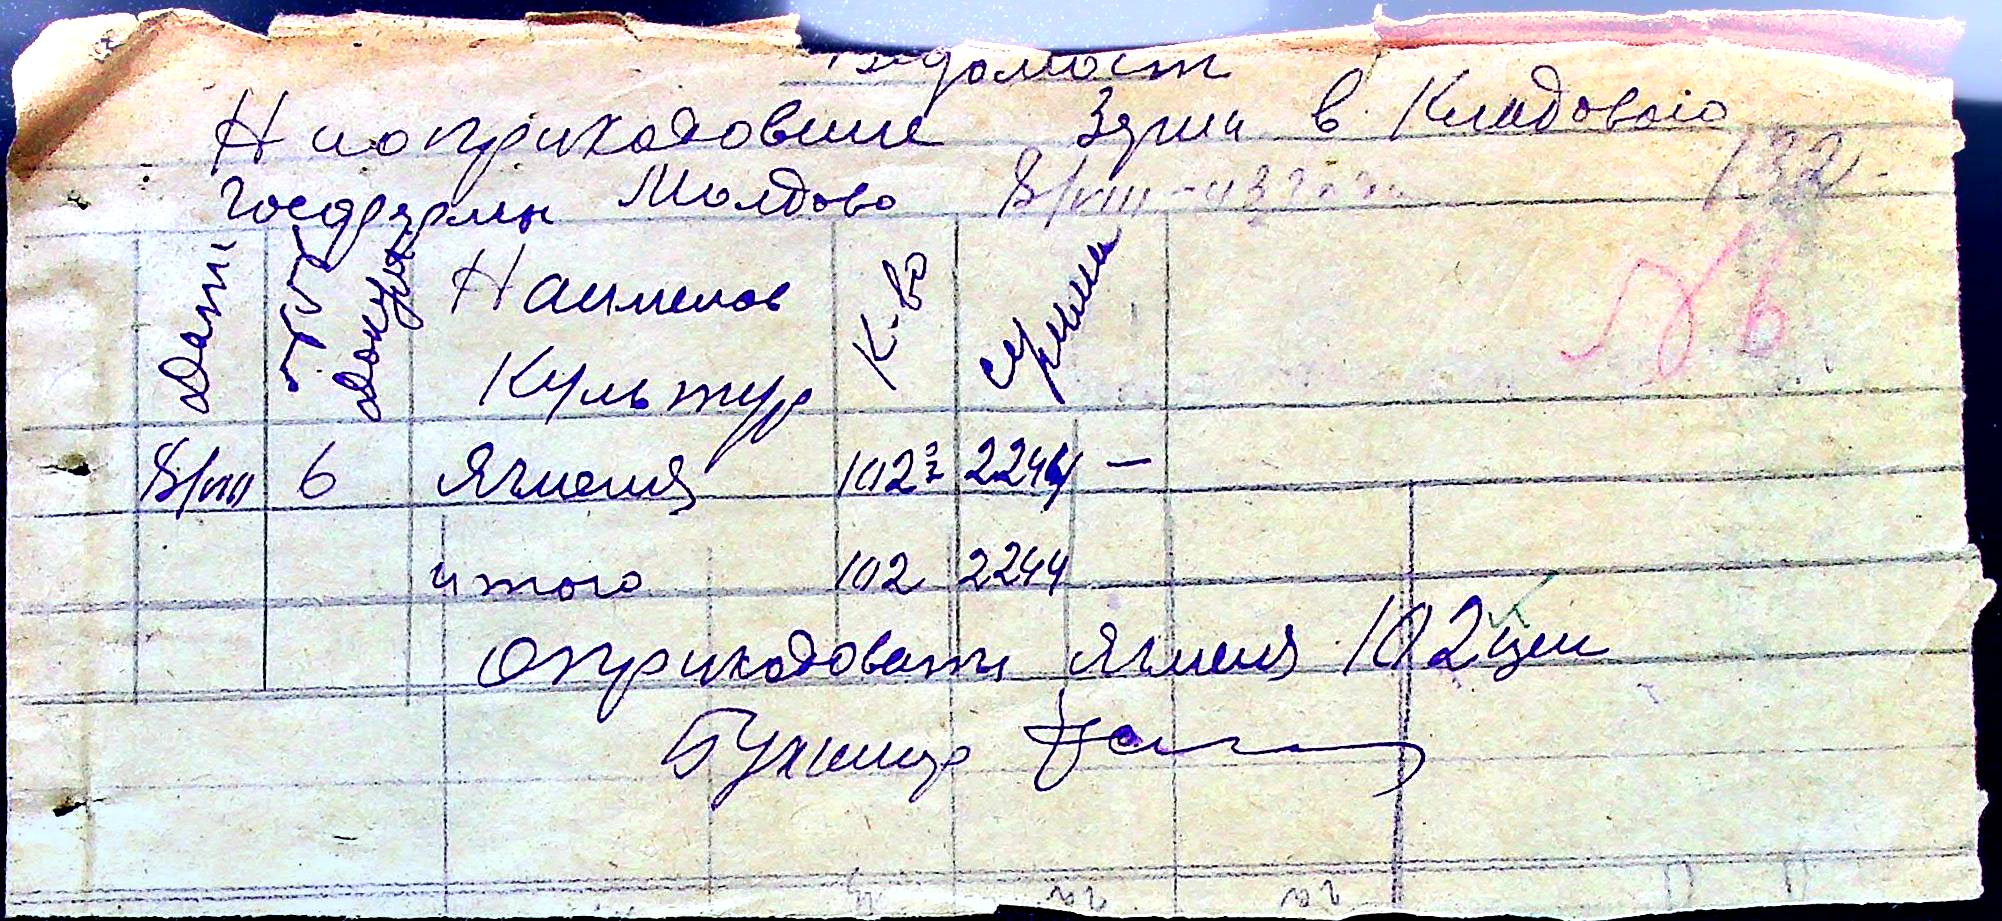 Ведомост
На оприходовние Зерна в Кладового
Госфермы Молдова 8/VIII-43 года 132
№ 6
Дата №№ докум Наименов Культур К-во сумма
8/VIII 6 Ячменя 102 ц 2244 —
итого 102 2244
Оприходовать Ячменя 102 цен
Бухгалтер